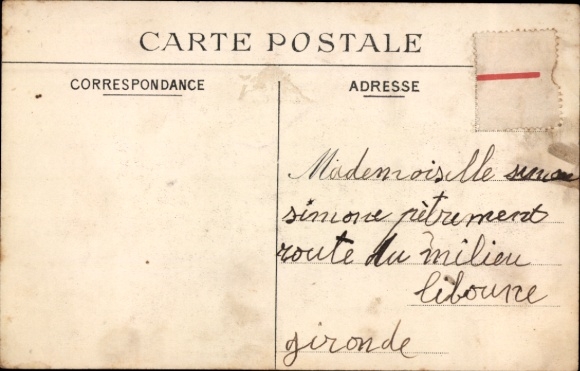 CARTE POSTALE
CORRESPONDANCE
ADRESSE
Mademoiselle
simone pètrement
route du milieu
libourne
gironde